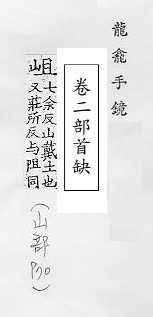 龍龕手鏡
卷二部首缺
岨七余反山戴土也
又莊所反与阻同
(山部P70)